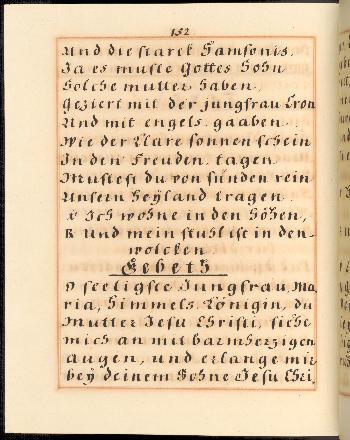 152
Und die starck Samsonis.
Ja es muste Gottes Sohn
Solche mutter haben,
Geziert mit der jungfrau Cron
Und mit engels gaaben.
Wie der Klare sonnenschein
In den Freuden tagen
Mustest du von sünden rein
Unsern Heyland tragen.
V Ich wohne in den Höhen,
R Und mein stuhl ist in den-
wolcken.
Gebeth
O seeligste Jungfrau Ma
ria, Himmels Königin, du
Mutter Jesu Christi, siehe
mich an mit barmherzigen
augen, und erlange mir
bey deinem Sohne Jesu Chri,